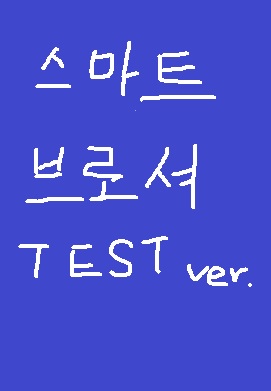 스마트
브로셔
TEST ver.